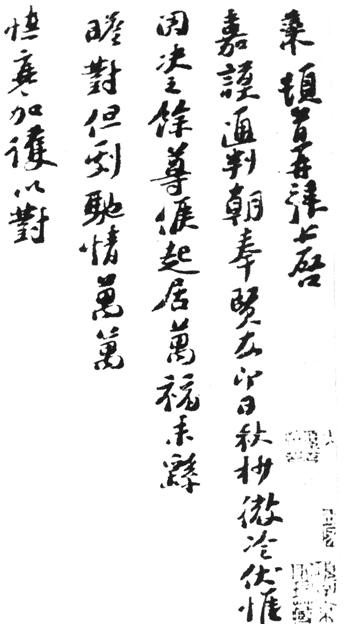 頓首再拜上啓
嘉謨通判朝奉賢友即日秋杪微冷伏惟
决之餘尊候起居萬未繇
瞻對但劇馳情萬萬
加護以對